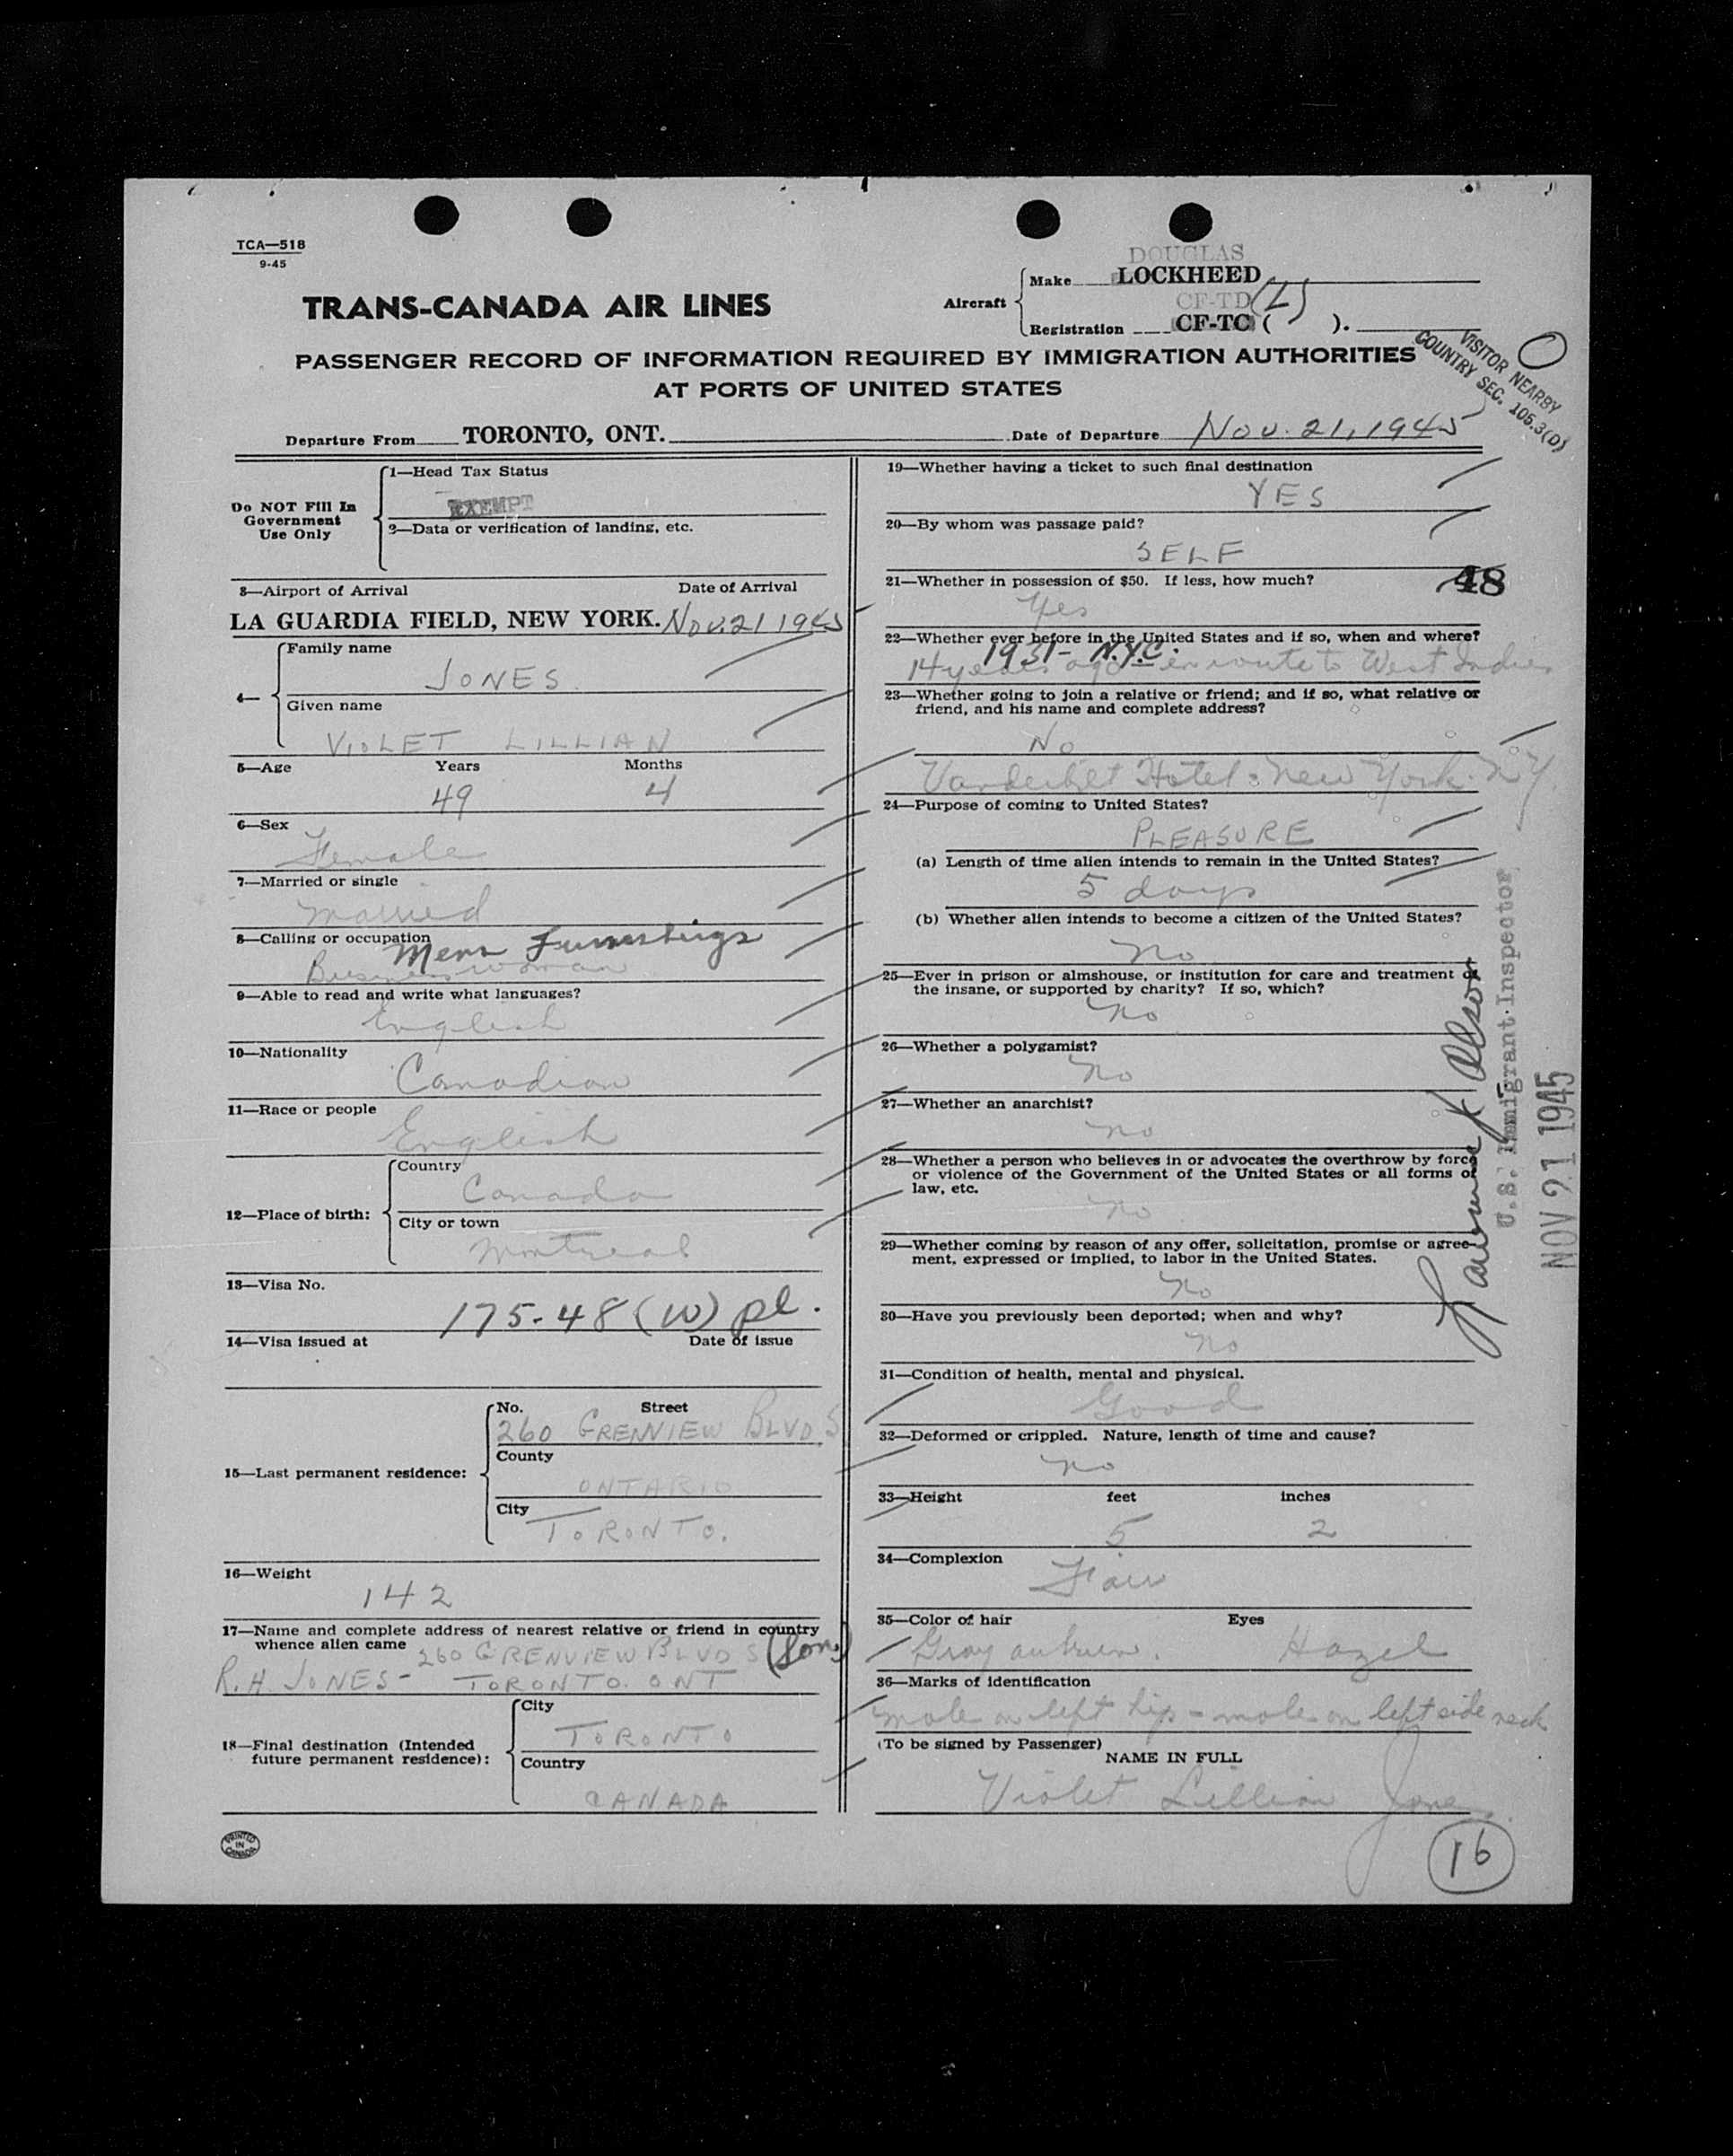 TCA—518
9-45
DOUGLAS
Make LOCKHEED
TRANS-CANADA AIR LINES
Aircraft
CF-TD (L)
Registration CF-TC ( ).
PASSENGER RECORD OF INFORMATION REQUIRED BY IMMIGRATION AUTHORITIES
AT PORTS OF UNITED STATES
VISITOR NEARBY
COUNTRY SEC. 105.3(D)
Departure From TORONTO, ONT. Date of Departure Nov. 21, 1945
Do NOT Fill In
Government
Use Only
1—Head Tax Status
EXEMPT
2—Data or verification of landing, etc.
3—Airport of Arrival Date of Arrival
LA GUARDIA FIELD, NEW YORK. Nov. 21 1945
4—
Family name
JONES
Given name
VIOLET LILLIAN
5—Age Years Months
49 4
6—Sex
Female
7—Married or single
Married
8—Calling or occupation
Mens Furnishings
Business woman
9—Able to read and write what languages?
English
10—Nationality
Canadian
11—Race or people
English
12—Place of birth:
Country
Canada
City or town
Montreal
13—Visa No.
175-48 (W) pl.
14—Visa issued at Date of issue
15—Last permanent residence:
No. Street
260 GRENVIEW BLVD S
County
ONTARIO
City
TORONTO.
16—Weight
142
17—Name and complete address of nearest relative or friend in country
whence alien came 260 GRENVIEW BLVD S (Son)
R. H. JONES - TORONTO. ONT
18—Final destination (Intended
future permanent residence):
City
TORONTO
Country
CANADA
PRINTED
IN
CANADA
19—Whether having a ticket to such final destination
YES
20—By whom was passage paid?
SELF
21—Whether in possession of $50. If less, how much?
48
Yes
22—Whether ever before in the United States and if so, when and where?
1931 - N.Y.C.
14 years ago - enroute to West Indies
23—Whether going to join a relative or friend; and if so, what relative or
friend, and his name and complete address?
No
Vanderbilt Hotel: New York. N.Y.
24—Purpose of coming to United States?
PLEASURE
(a) Length of time alien intends to remain in the United States?
5 days
(b) Whether alien intends to become a citizen of the United States?
No
25—Ever in prison or almshouse, or institution for care and treatment of
the insane, or supported by charity? If so, which?
No
26—Whether a polygamist?
No
27—Whether an anarchist?
no
28—Whether a person who believes in or advocates the overthrow by force
or violence of the Government of the United States or all forms of
law, etc.
no
29—Whether coming by reason of any offer, solicitation, promise or agree-
ment, expressed or implied, to labor in the United States.
No
30—Have you previously been deported; when and why?
no
31—Condition of health, mental and physical.
Good
32—Deformed or crippled. Nature, length of time and cause?
no
33—Height feet inches
5 2
34—Complexion
Fair
35—Color of hair Eyes
Gray auburn. Hazel
36—Marks of identification
mole on left hip - mole on left side neck
(To be signed by Passenger)
NAME IN FULL
Violet Lillian Jones.
16
U.S. Immigrant Inspector
NOV 21 1945